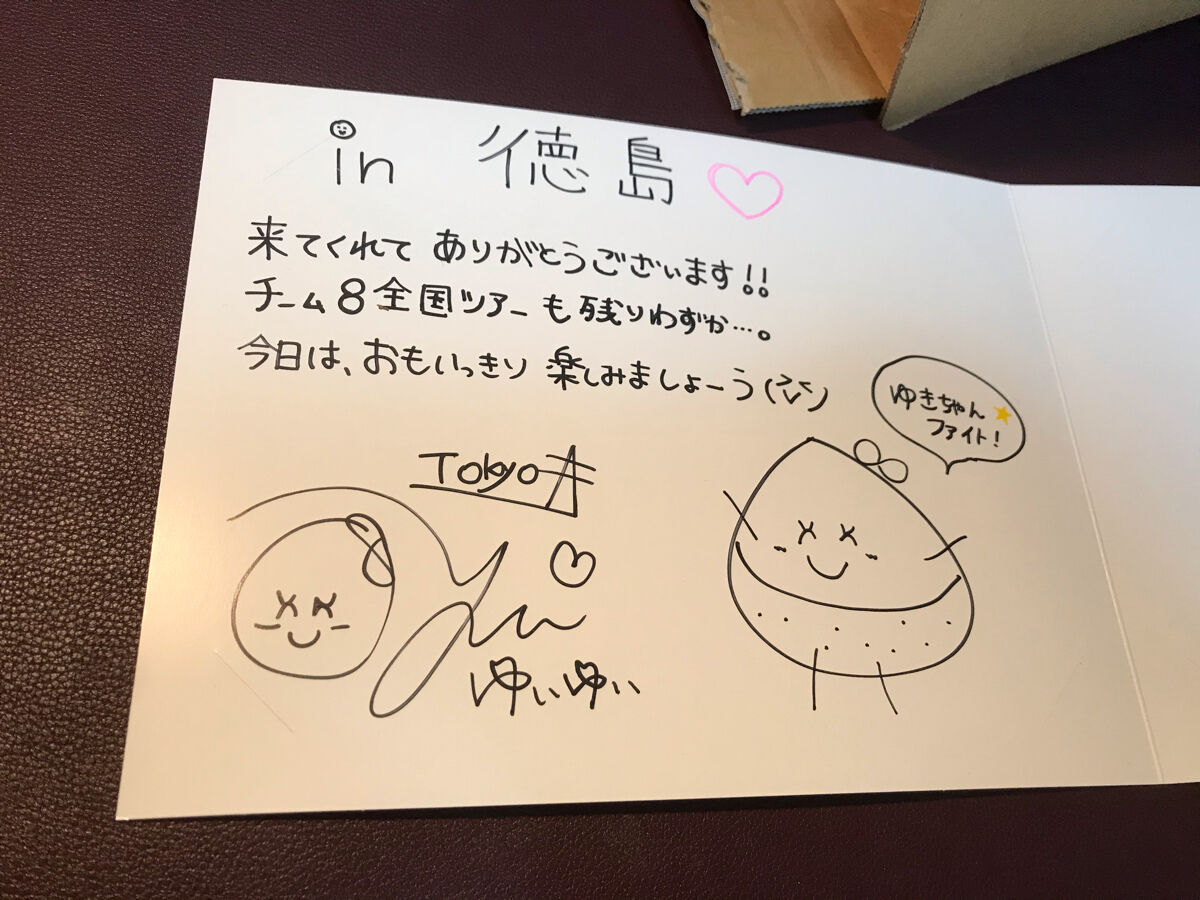 in 徳島
来てくれて ありがとうございます!!
チーム8全国ツアーも残りわずか…。
今日は、おもいっきり 楽しみましょーう
ゆきちゃん
ファイト!
Tokyo
ゆいゆい